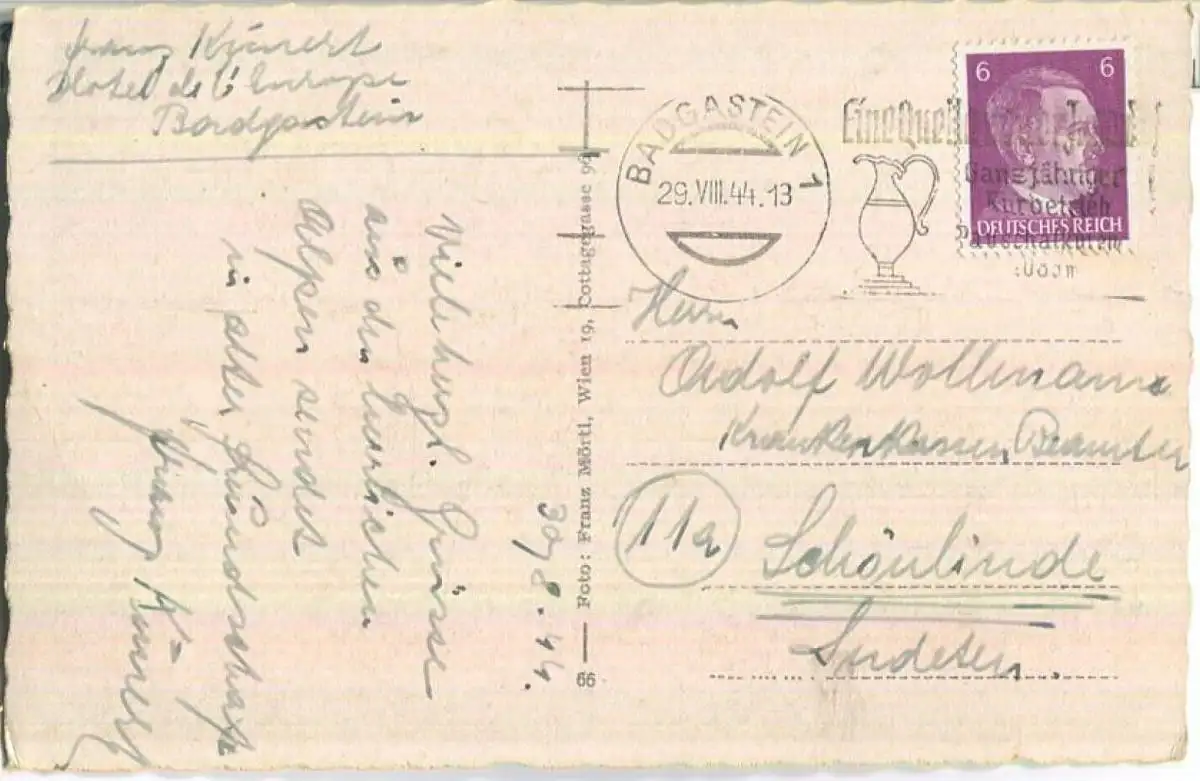 Franz Kunert
Hotel de l'Europe
Badgastein
BADGASTEIN 1
29.VIII.44.13
Eine Quelle
Ganzjähriger
Kurbetrieb
Pauschalkuren
6 6
DEUTSCHES REICH
Foto: Franz Mörtl, Wien 19, Cottagegasse 9
66
30/8.44.
Viele herzl. Grüsse
aus den herrlichen
Alpen sendet
in alter Freundschaft
Franz Kunert
Herrn
Adolf Wollmann
Krankenkassen Beamter
11a Schönlinde
Sudeten.